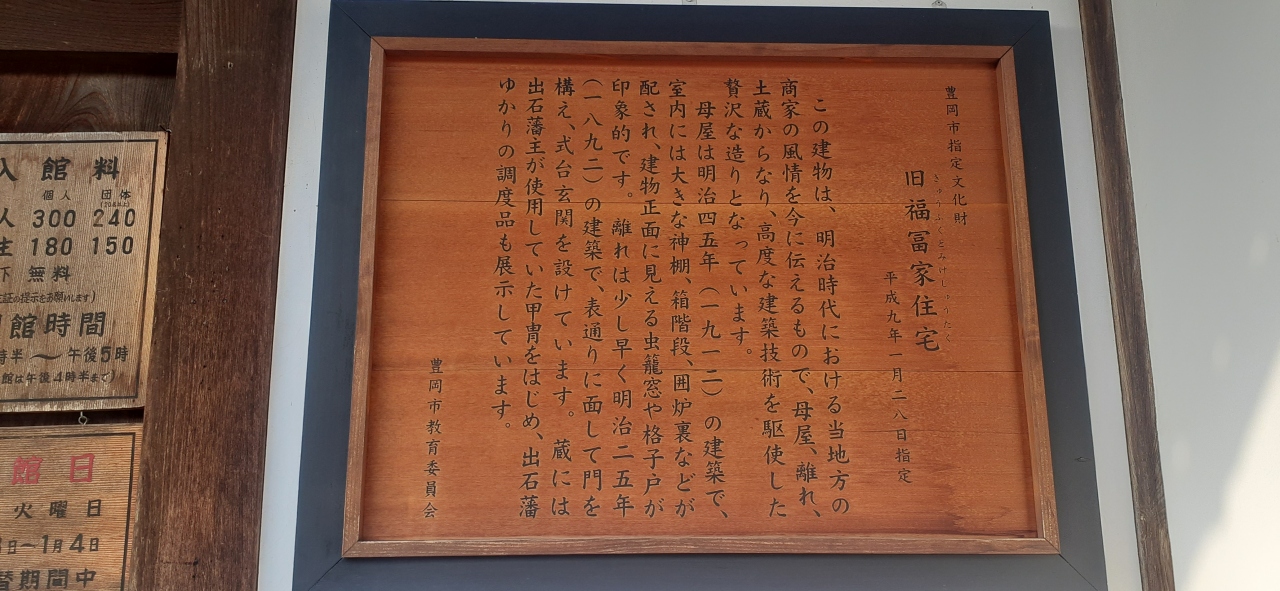 豊岡市指定文化財
きゅうふくとみけじゅうたく
旧福冨家住宅
平成九年一月二八日指定
この建物は、明治時代における当地方の
商家の風情を今に伝えるもので、母屋、離れ、
土蔵からなり、高度な建築技術を駆使した
贅沢な造りとなっています。
母屋は明治四五年(一九一二)の建築で、
室内には大きな神棚、箱階段、囲炉裏などが
配され、建物正面に見える虫籠窓や格子戸が
印象的です。離れは少し早く明治二五年
(一八九二)の建築で、表通りに面して門を
構え、式台玄関を設けています。蔵には
出石藩主が使用していた甲冑をはじめ、出石藩
ゆかりの調度品も展示しています。
豊岡市教育委員会
入館料
個人 団体
人 300 240
生 180 150
下 無料
証の提示をお願いします)
館時間
時半〜午後5時
館は午後4時半まで)
館日
火曜日
日〜1月4日
替期間中